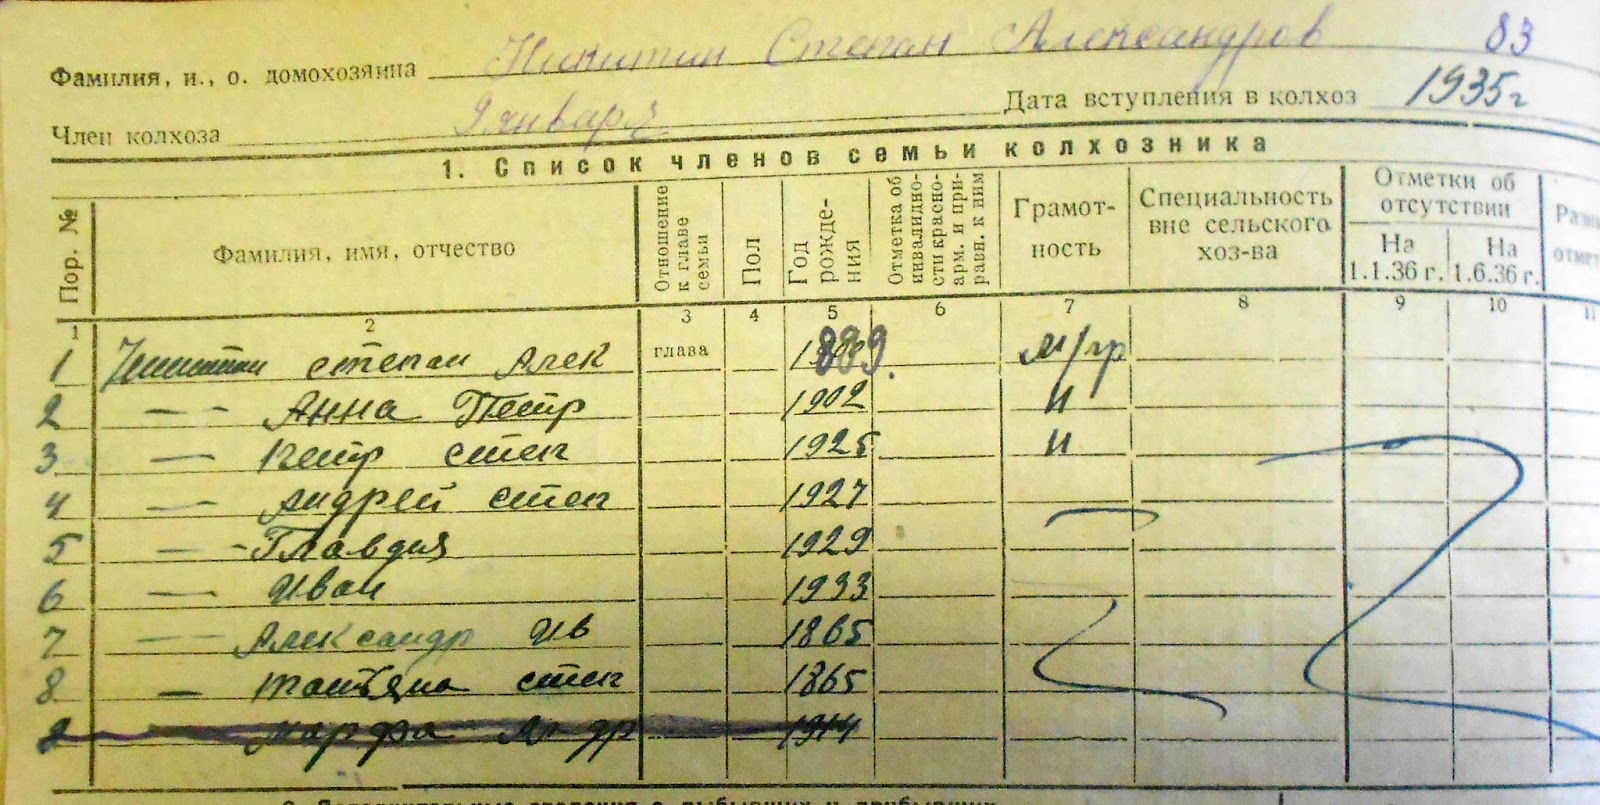 Фамилия, и., о. домохозяина Никитин Степан Александров 83
Член колхоза 9 января Дата вступления в колхоз 1935 г
1. Список членов семьи колхозника
Пор. № Фамилия, имя, отчество Отношение к главе семьи Пол Год рожде- ния Отметка об инвалидно- сти красно- арм. и при- равн. к ним Грамот- ность Специальность вне сельского хоз-ва Отметки об отсутствии На 1.1.36 г. На 1.6.36 г.
1 2 3 4 5 6 7 8 9 10 11
1 Никитин Степан Алек глава 889. м/гр
2 — — Анна Петр 1902 и
3 — Петр Степ 1925 и
4 — Андрей Степ 1927
5 — Главдия 1929
6 — Иван 1933
7 — — Александр Ив 1865
8 — Татьяна Степ 1865
9 Марфа 1914